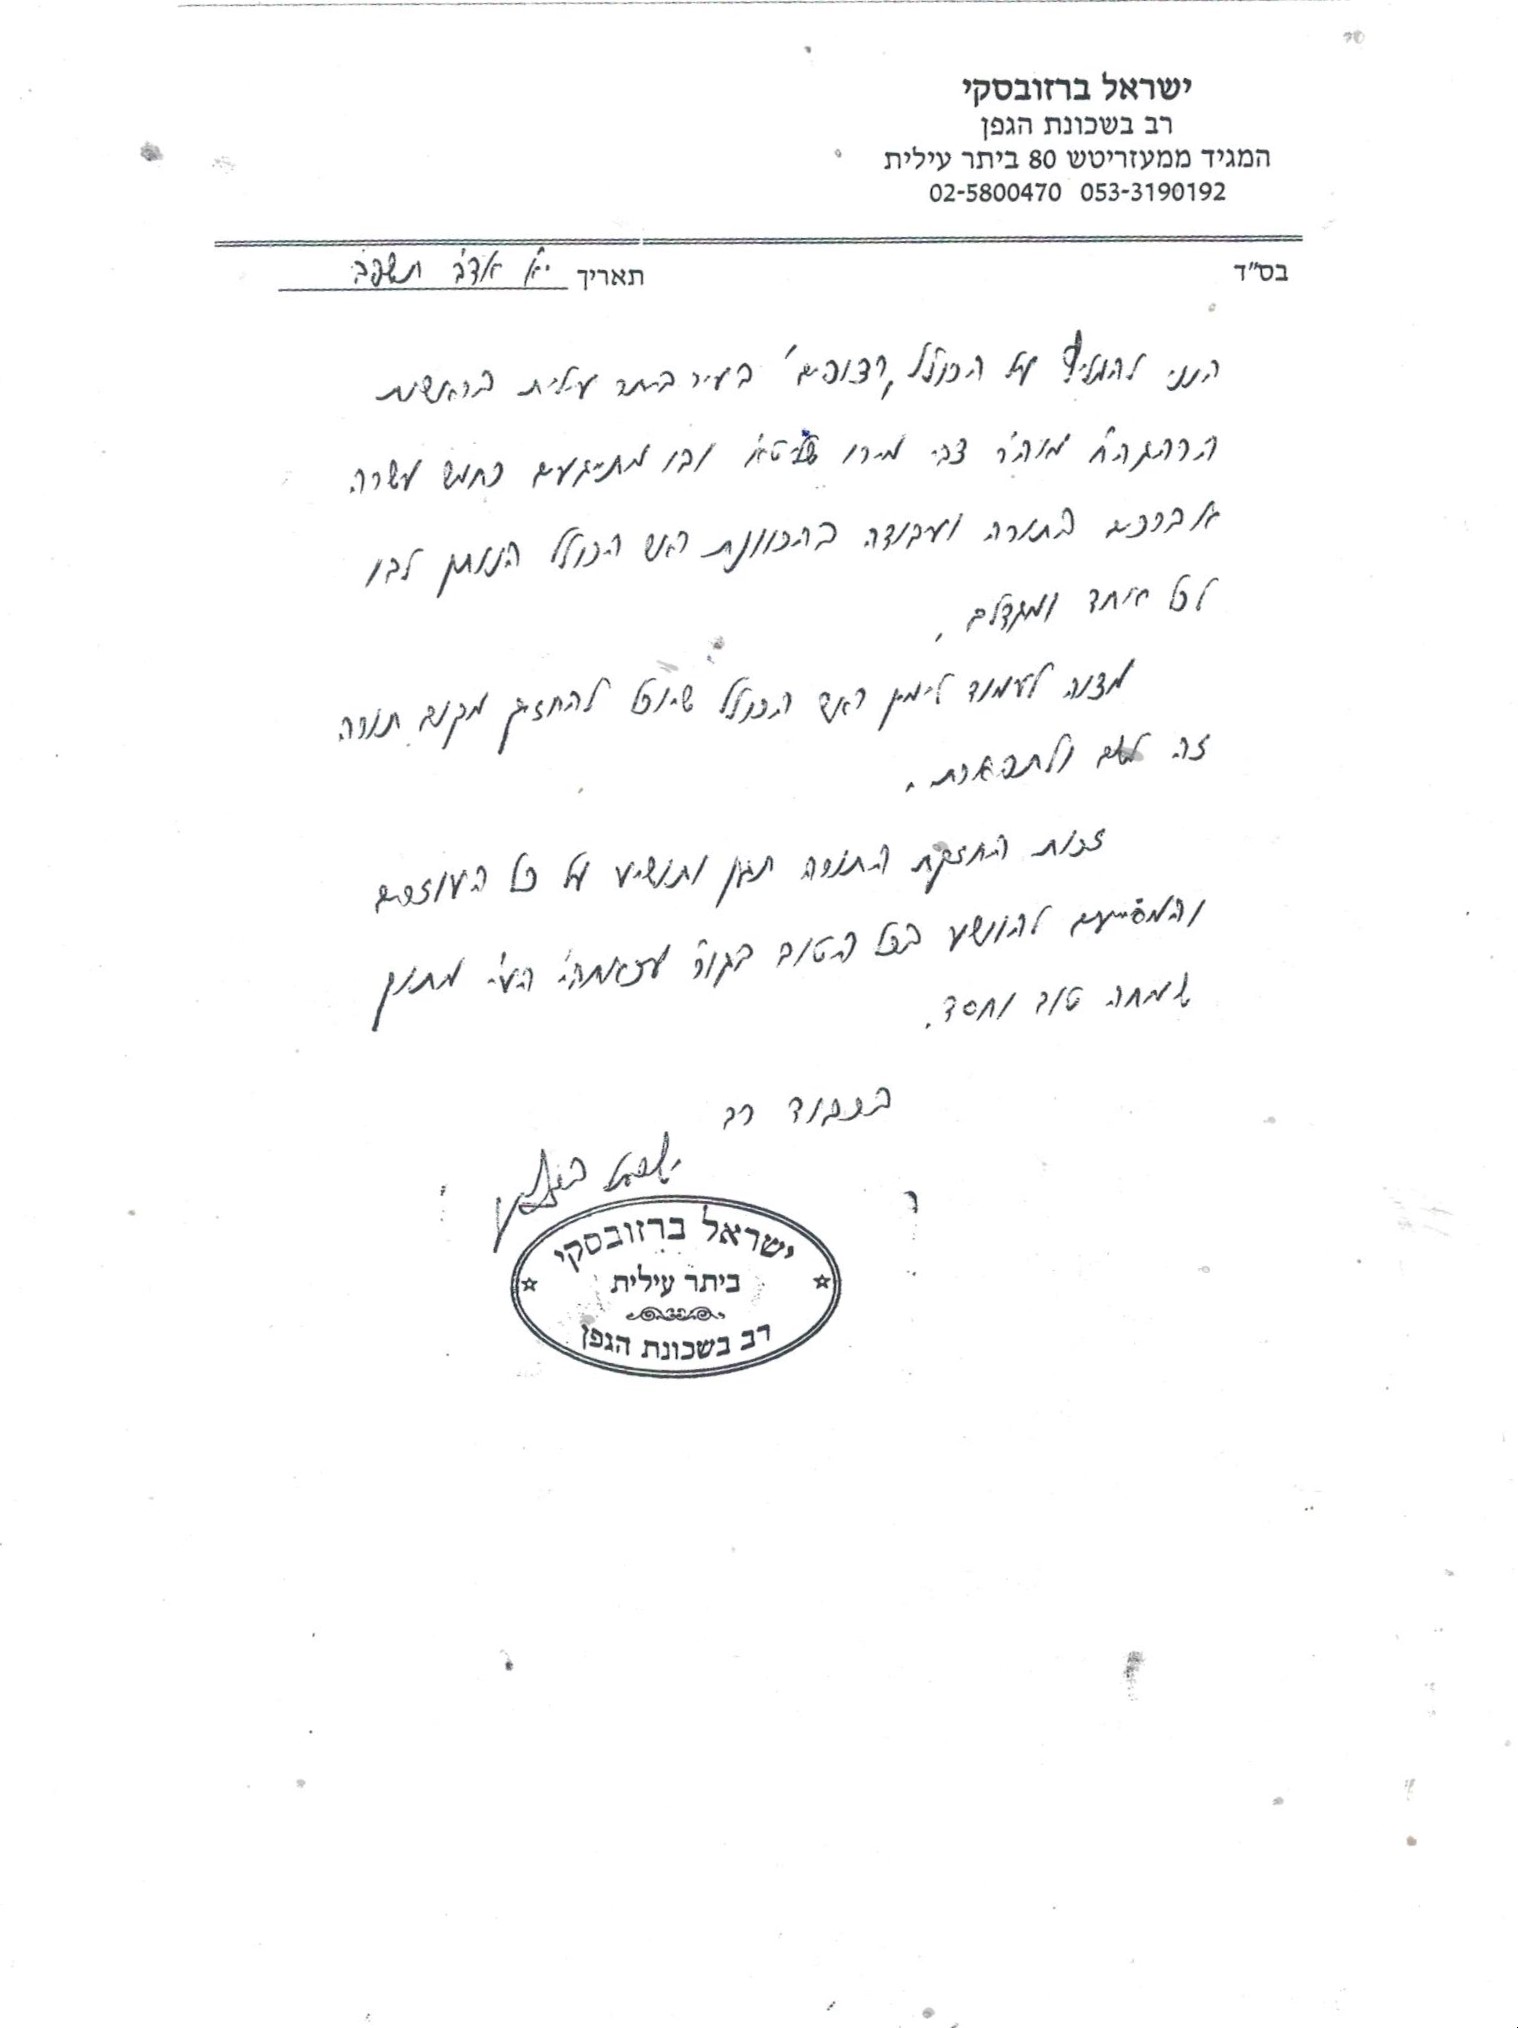 ישראל ברזובסקי
רב בשכונת הגפן
המגיד ממעזריטש 80 ביתר עילית
02-5800470 053-3190192
בס"ד
תאריך י"א אדר תשפ"ב
הנני להמליץ על הכולל "רצופים" בעיר ביתר עילית בראשות
הרהגה"ח מוה"ר צבי מירו שליט"א ובו מתייגעים כחמש עשרה
אברכים בתורה ועבודה בהכוונת ראש הכולל הנותן לבו
לכל אחד ומגדלם.
מצוה לעמוד לימין ראש הכולל שיוכל להחזיק מקום תורה
זה לשם ולתפארת.
זכות החזקת התורה תגן ותושיע על כל העוזרים
והמסייעים להוושע בכל הטוב בקו"ר מתוך
שמחה טוב וחסד.
בכבוד רב
ישראל ברזובסקי
ישראל ברזובסקי
ביתר עילית
רב בשכונת הגפן